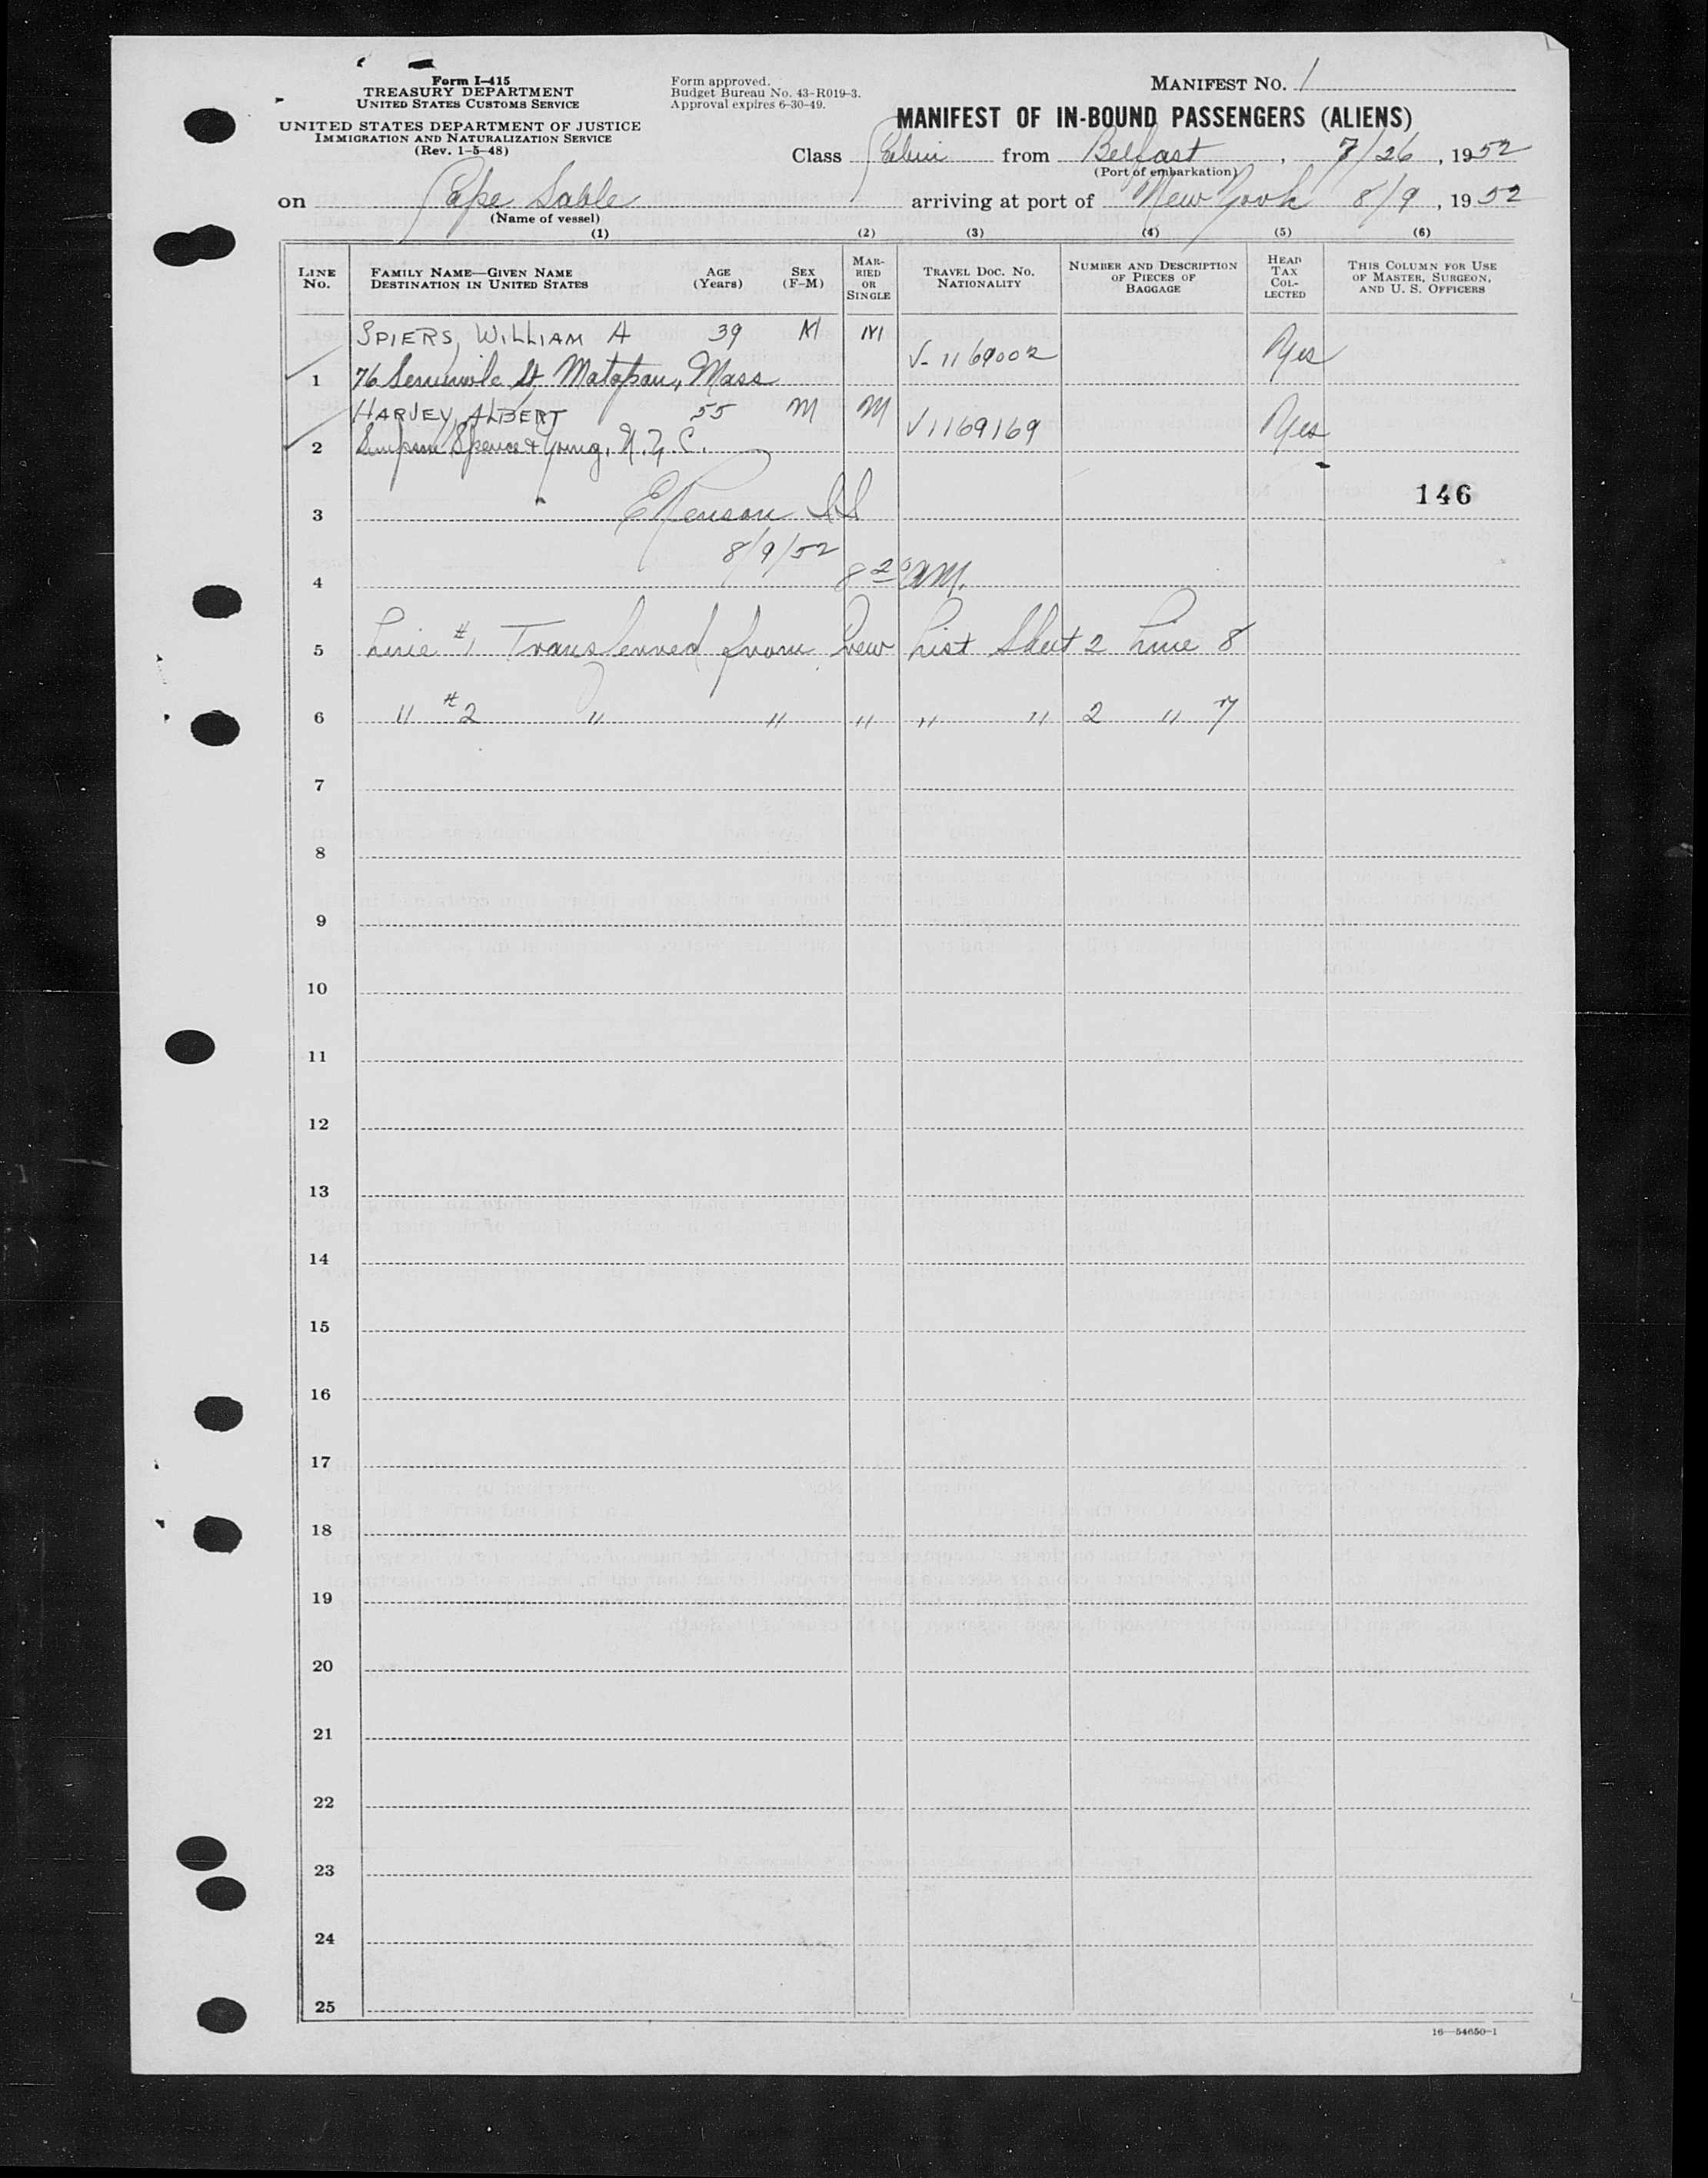 Form I-415
TREASURY DEPARTMENT
UNITED STATES CUSTOMS SERVICE
UNITED STATES DEPARTMENT OF JUSTICE
IMMIGRATION AND NATURALIZATION SERVICE
(Rev. 1-5-48)
Form approved.
Budget Bureau No. 43-R019-3.
Approval expires 6-30-49.
MANIFEST NO. 1
MANIFEST OF IN-BOUND PASSENGERS (ALIENS)
Class Cabin from Belfast, 7/26, 1952
(Port of embarkation)
on Cape Sable arriving at port of New York 8/9, 1952
(Name of vessel)
(1) (2) (3) (4) (5) (6)
LINE NO.
FAMILY NAME—GIVEN NAME
DESTINATION IN UNITED STATES
AGE (Years)
SEX (F-M)
MARRIED OR SINGLE
TRAVEL DOC. NO.
NATIONALITY
NUMBER AND DESCRIPTION OF PIECES OF BAGGAGE
HEAD TAX COLLECTED
THIS COLUMN FOR USE OF MASTER, SURGEON, AND U. S. OFFICERS
SPIERS, WILLIAM A 39 M M V-1169002 Yes
1 76 St Matapan, Mass
HARVEY, ALBERT 55 M M V1169169 Yes
2 Simpson Spence & Young, N.Y.C.
146
3
8/9/52
4 8 20 AM.
5 Line #1 Transferred from Crew List Sheet 2 Line 8
6 " #2 " " " " " 2 " 7
7
8
9
10
11
12
13
14
15
16
17
18
19
20
21
22
23
24
25
16—54650-1